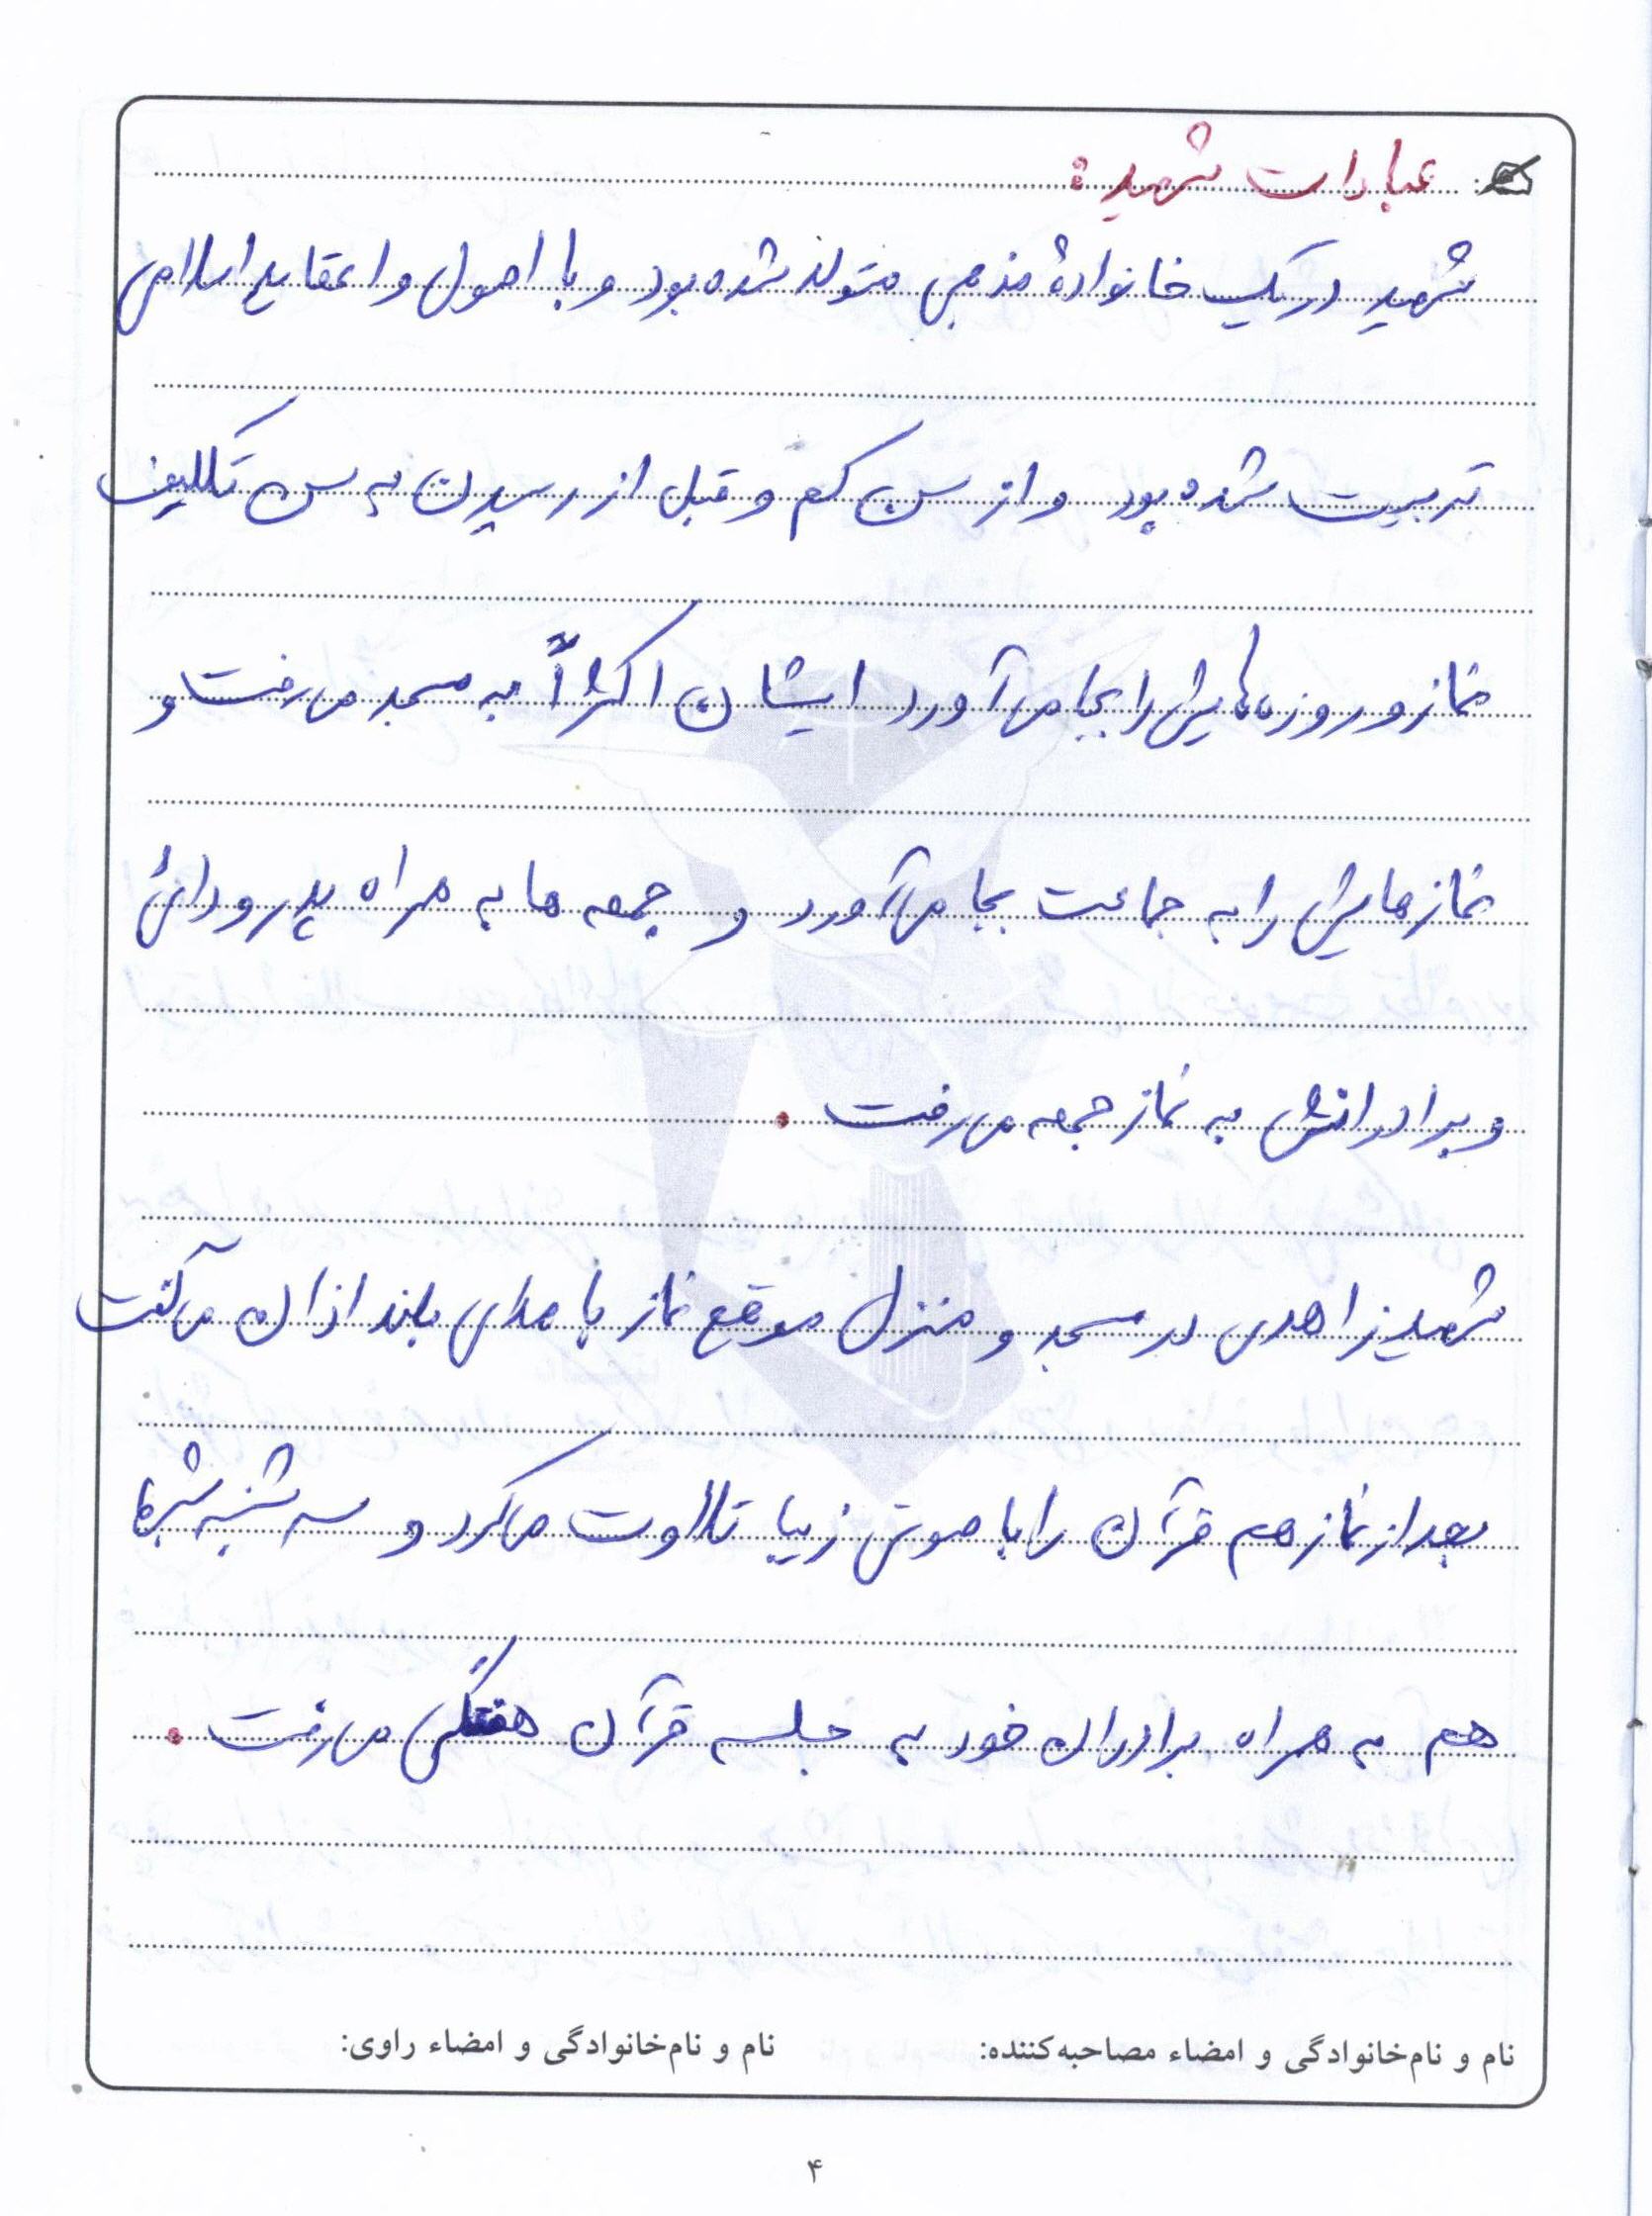 عبادات شهید:
شهید در یک خانوادهٔ مذهبی متولد شده بود و با اصول و اعقاید اسلامی
تربیت شده بود و از سن کم و قبل از رسیدن به سن تکلیف
نماز و روزه‌هایش را بجا می‌آورد ایشان اکثراً به مسجد می‌رفت و
نمازهایش را به جماعت بجا می‌آورد و جمعه ها به همراه پدر و دائی
و برادرانش به نماز جمعه می‌رفت.
شهید زاهدی در مسجد و منزل موقع نماز با صدای بلند اذان می‌گفت
بعد از نماز هم قرآن را با صوتی زیبا تلاوت می‌کرد و سه شنبه شبها
هم به همراه برادران خود به جلسه قرآن هفتگی می‌رفت.
نام و نام‌خانوادگی و امضاء مصاحبه‌کننده: نام و نام‌خانوادگی و امضاء راوی:
۴